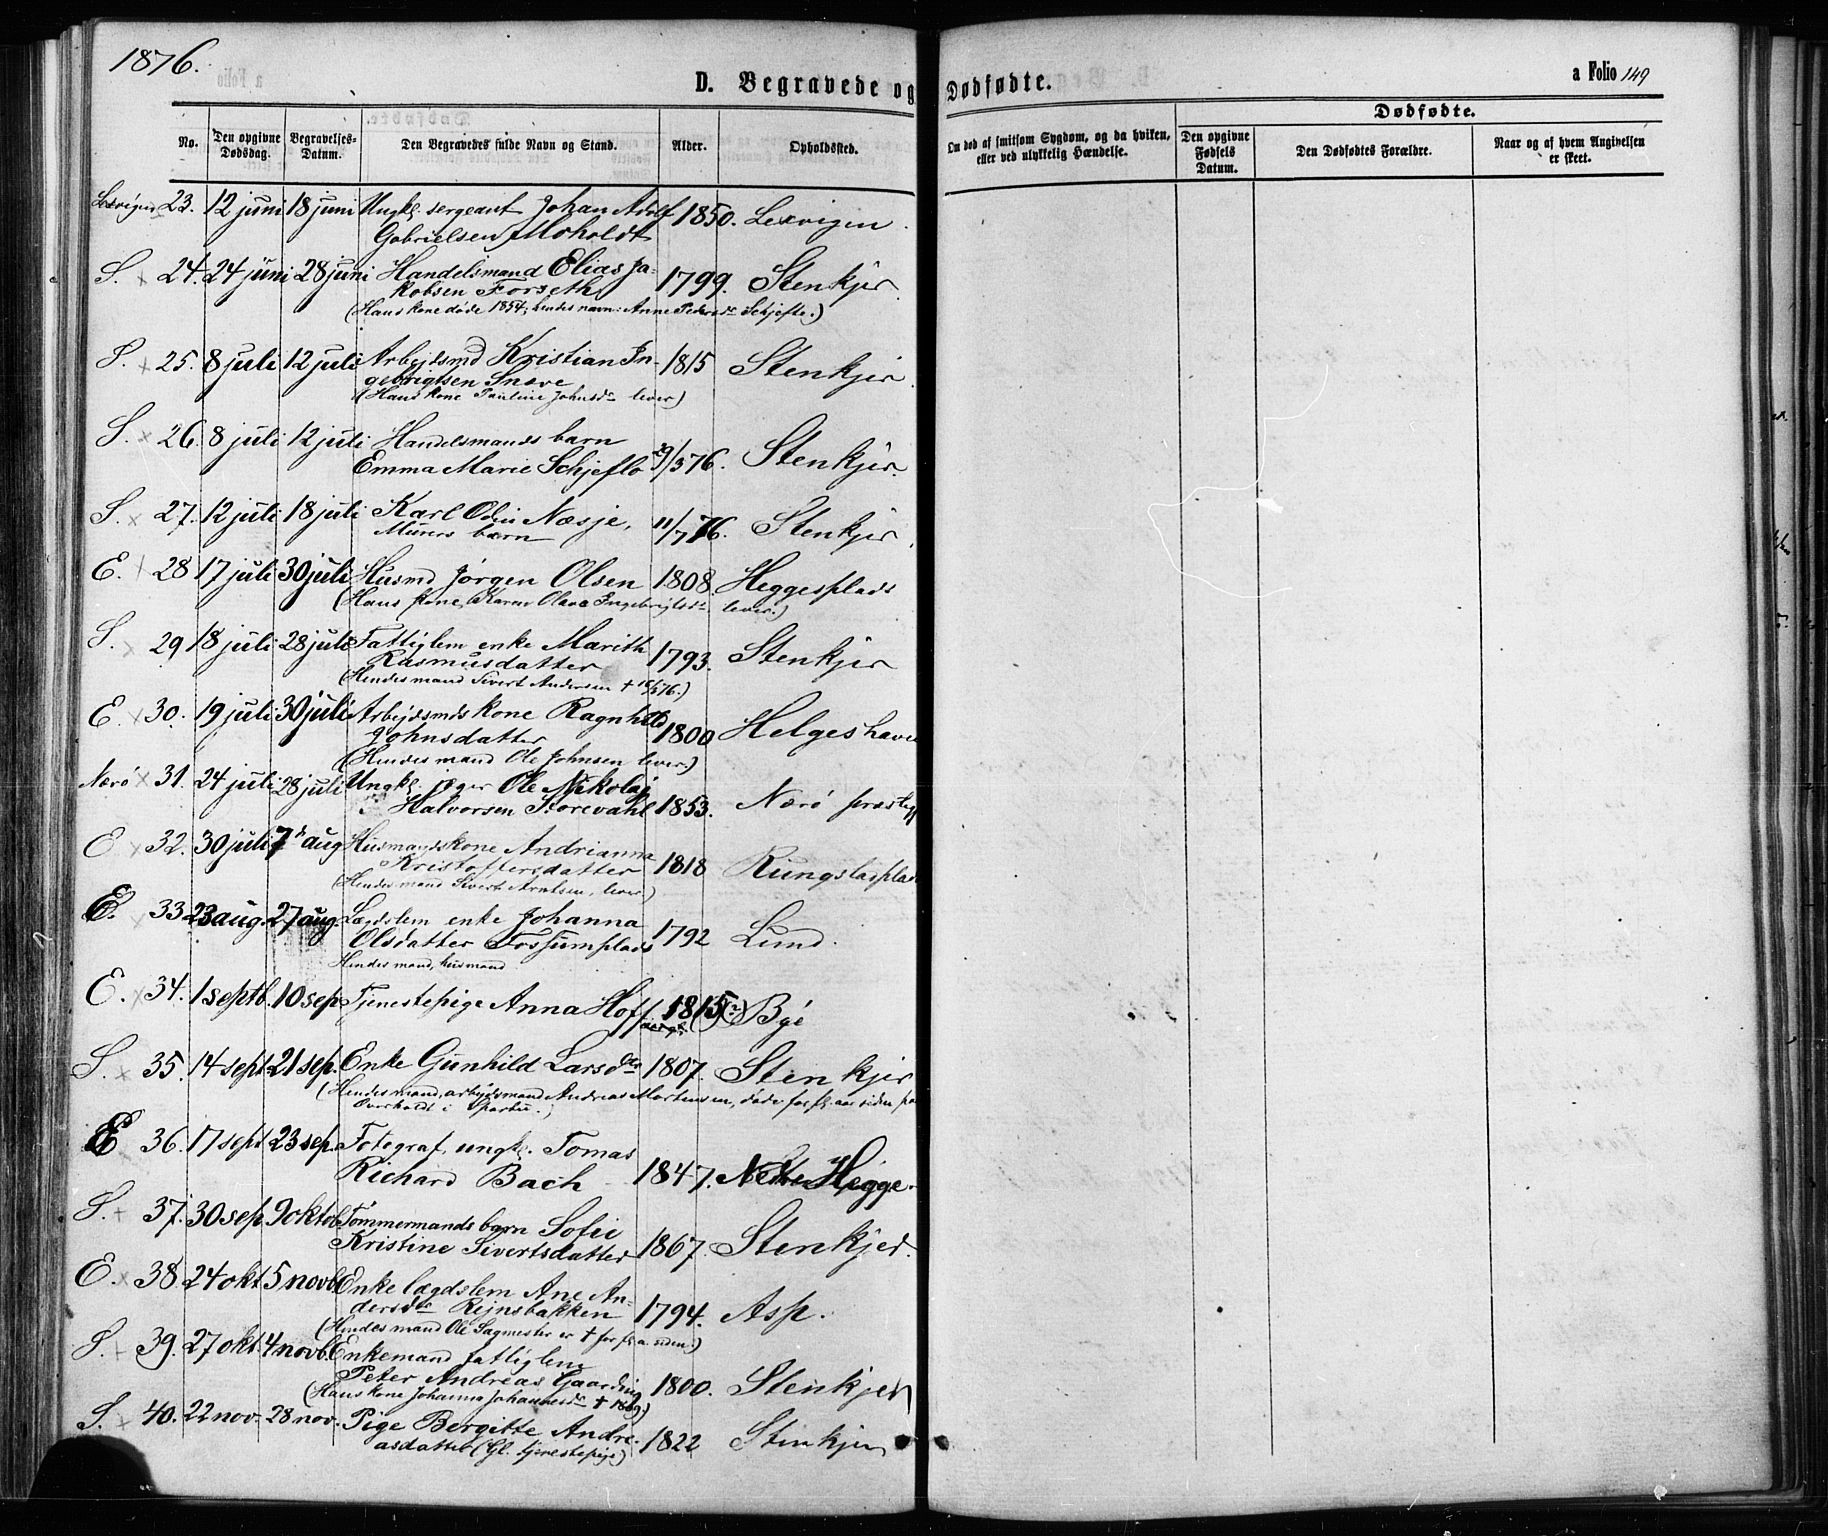 1876.
D. Begravede og Dødfødte.
a Folio 149
No. Den opgivne Dødsdag. Begravelses-Datum. Den Begravedes fulde Navn og Stand. Alder. Opholdssted. Om død af smitsom Sygdom, og da hvilken, eller ved ulykkelig Hændelse. Dødfødte. Den opgivne Fødsels Datum. Den Dødfødtes Forældre. Naar og af hvem Angivelsen er skeet.
Lexvigen 23. 12 juni 18 juni Ungk. sergeant Johan Adolf 1850. Lexvigen.
Gabrielsen Moholdt
S. x 24. 24 juni 28 juni Handelsmand Elias Ja- 1799. Stenkjer.
kobsen Forseth
(Hans kone døde 1854, hendes navn: Anne Pedersdr Schjefte.)
S. x 25. 8 juli 12 juli Arbejdsmd Kristian In- 1815 Stenkjer.
gebrigtsen Snave
(Hans kone Pauline Johnsdr lever)
S. x 26. 8 juli 12 juli Handelsmands barn
Emma Marie Schjeflo 29/3 76. Stenkjer.
S. x 27. 12 juli 18 juli Karl Odin Næsje, 11/7 76. Stenkjer.
Murers barn
E. 28 17 juli 30 juli Husmd Jørgen Olsen 1808. Heggesplads
(Hans kone, Karen Olava Ingebrigtsdr lever.)
S. x 29 18 juli 28 juli Fattiglem enke Marith
Rasmusdatter 1793. Stenkjer
(Hendes mand Sivert Andersen † 16/5 76.)
E. x 30. 19 juli 30 juli Arbejdsmds kone Ragnhild
Johnsdatter 1800 Helgeshaven
(Hendes mand Ole Johnsen lever.)
Nærø x 31. 24 juli 28 juli Ungk. jæger Ole Nikolaj
Halvorsen Storevahl 1853. Nærø præstegj
E x 32. 30 juli 7de aug Husmandskone Andrianna
Kristoffersdatter 1818 Rungstasplads
(Hendes mand Sivert Arntsen, lever)
E. 33 23 aug. 27 aug. Lægdslem enke Johanna
Olsdatter Fossumplads 1792 Lund.
Hendes mand, husmand
E. x 34. 1 septb. 10 sep Tjenestepige Anna Hoff 1815 (?) Bye
S. x 35. 14 sept 21 sep. Enke Gunhild Larsdtr 1807. Stenkjer
(Hendes mand, arbejdsmand Andreas Mortensen, døde for fl. aar siden paa
Overholdt i Sparbu.)
E x 36. 17 sept 23 sep. Fotograf, ungk. Tomas
Richard Bach 1847. Nedre Hegge.
S. 37. 30 sep. 9 oktob Tømmermands barn Sofie
Kristine Sivertsdatter 1867. Stenkjer.
E. x 38. 24 okt 5 novb. Enke lægdslem Ane An-
dersdr Rejnsbakken 1794. Asp.
(Hendes mand Ole Sagmester er † for fl. a. siden.)
S. 39. 27 okt. 4 novb. Enkemand fattiglem
Peter Andreas Gaarding 1800. Stenkjer
(Hans kone Johanna Johannesdr † 1869.)
S. x 40. 22 nov. 28 nov. Pige Bergitte Andre-
asdatter (Gl. tjenestepige) 1822 Stenkjer